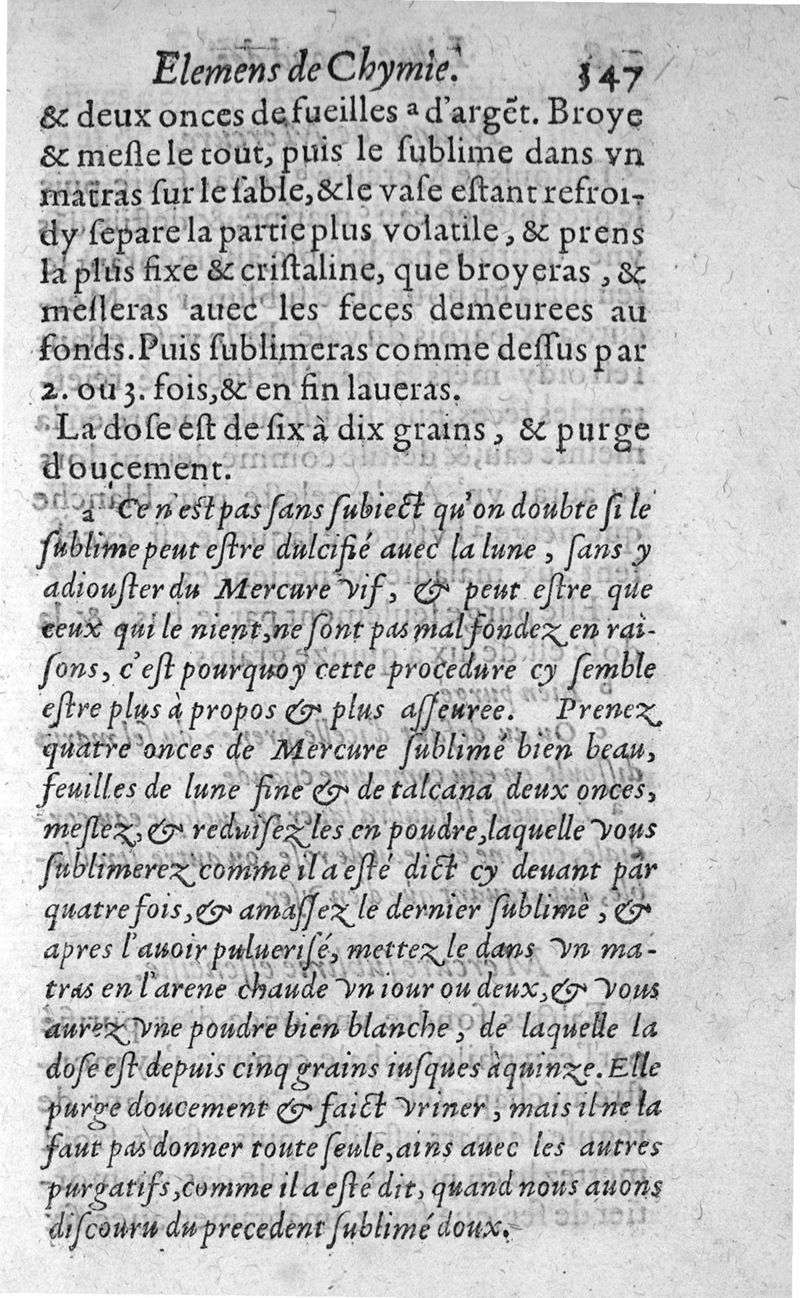 Elemens de Chymie. 347
& deux onces de fueilles ª d'argẽt. Broye
& mesle le tout, puis le sublime dans vn
matras sur le sable, & le vase estant refroi-
dy separe la partie plus volatile, & prens
la plus fixe & cristaline, que broyeras, &
mesleras auec les feces demeurees au
fonds. Puis sublimeras comme dessus par
2. ou 3. fois, & en fin laueras.
La dose est de six à dix grains, & purge
doucement.
a Ce n'est pas sans subiect qu'on doubte si le
sublime peut estre dulcifié auec la lune, sans y
adiouster du Mercure vif, & peut estre que
ceux qui le nient, ne sont pas mal fondez en rai-
sons, c'est pourquoy cette procedure cy semble
estre plus à propos & plus asseuree. Prenez
quatre onces de Mercure sublimé bien beau,
feuilles de lune fine & de talcana deux onces,
meslez, & reduisez les en poudre, laquelle vous
sublimerez comme il a esté dict cy deuant par
quatre fois, & amassez le dernier sublimè, &
apres l'auoir puluerisé, mettez le dans vn ma-
tras en l'arene chaude vn iour ou deux, & vous
aurez vne poudre bien blanche, de laquelle la
dose est depuis cinq grains iusques à quinze. Elle
purge doucement & faict vriner, mais il ne la
faut pas donner toute seule, ains auec les autres
purgatifs, comme il a esté dit, quand nous auons
discouru du precedent sublimé doux.